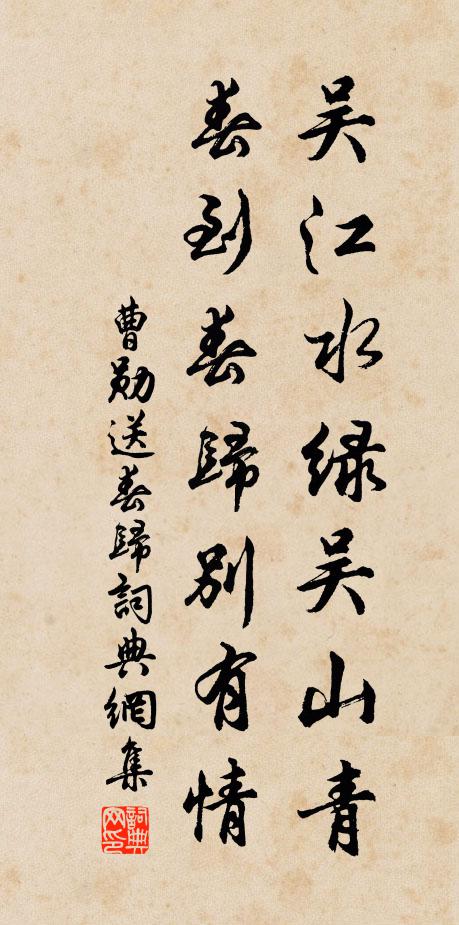 吴江水緑吴山青
春到春歸别有情
曹勛送春歸詞典網集
詞典网印